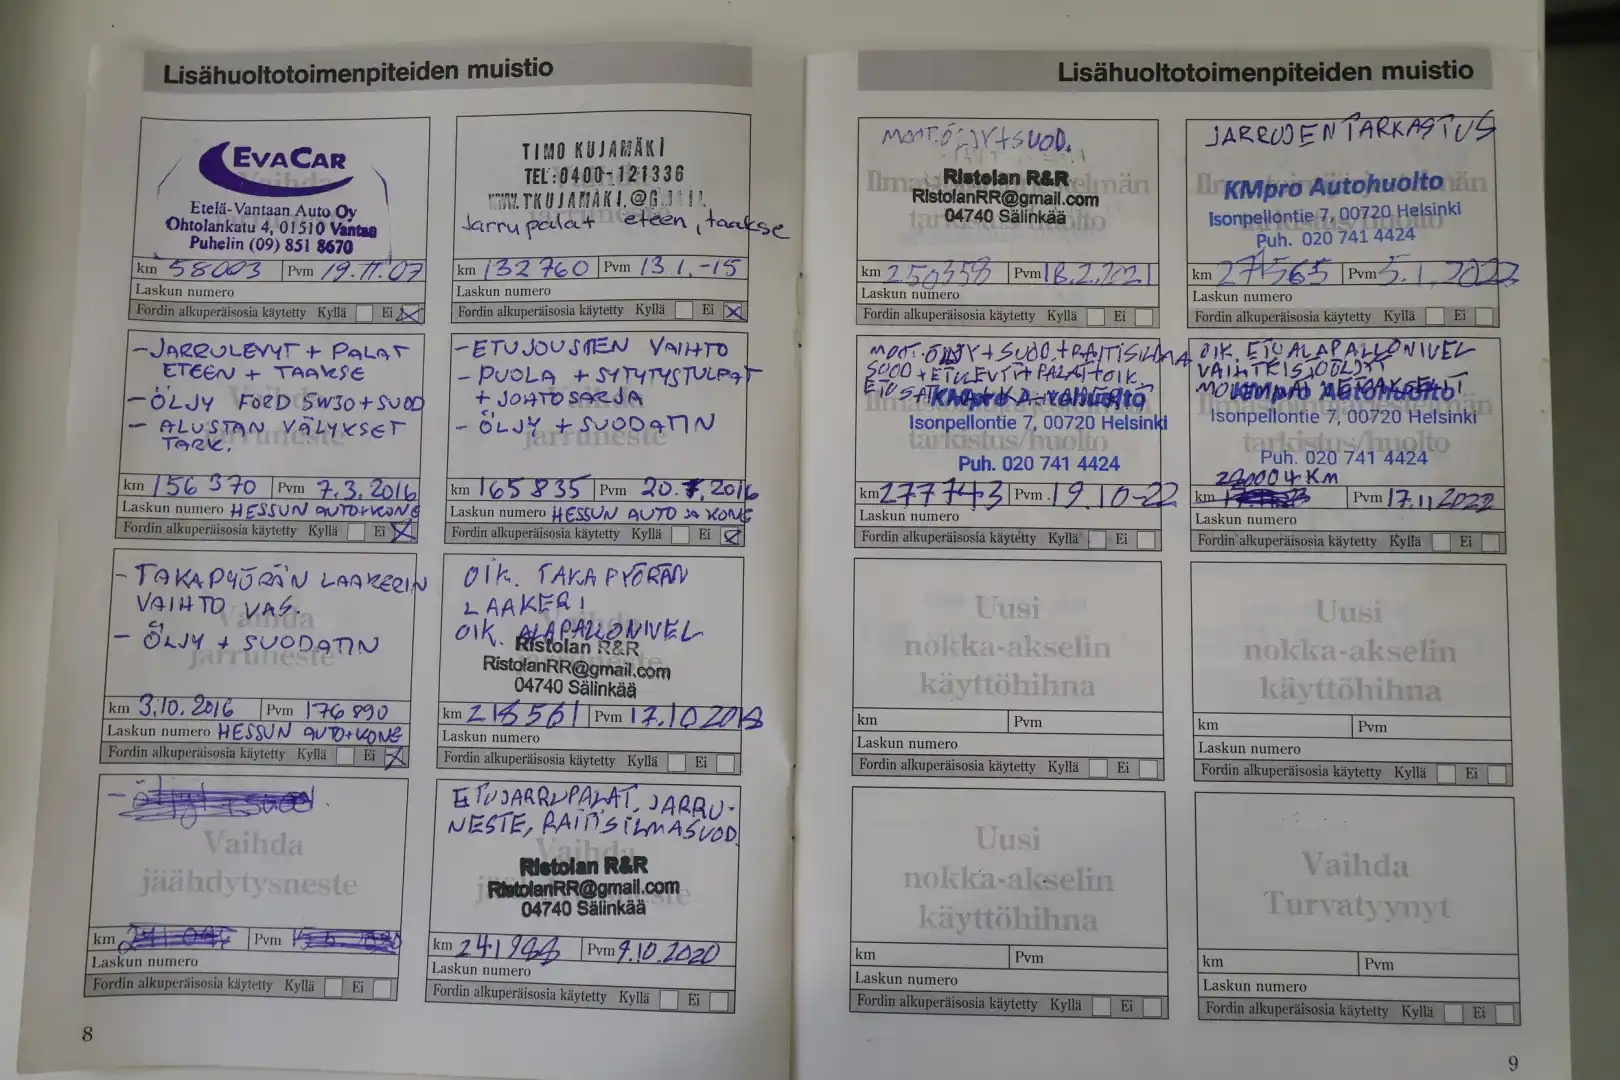 Lisähuoltotoimenpiteiden muistio
EVACAR
Etelä-Vantaan Auto Oy
Ohtolankatu 4, 01510 Vantaa
Puhelin (09) 851 8670
km 58003 Pvm 19.11.07
Laskun numero
Fordin alkuperäisosia käytetty Kyllä Ei X
TIMO KUJAMÄKI
TEL:0400-121336
Jarrupalat eteen, taakse
km 132760 Pvm 13.1.-15
Laskun numero
Fordin alkuperäisosia käytetty Kyllä Ei X
- JARRULEVYT + PALAT
ETEEN + TAAKSE
- ÖLJY FORD 5W30 + SUOD
- ALUSTAN VÄLYKSET
TARK.
km 156 370 Pvm 7.3.2016
Laskun numero HESSUN AUTO+KONE
Fordin alkuperäisosia käytetty Kyllä Ei X
- ETUJOUSTEN VAIHTO
- PUOLA + SYTYTYSTULPAT
+ JOHTOSARJA
- ÖLJY + SUODATIN
km 165835 Pvm 20.7.2016
Laskun numero HESSUN AUTO JA KONE
Fordin alkuperäisosia käytetty Kyllä Ei X
- TAKAPYÖRÄN LAAKERIN
VAIHTO VAS.
- ÖLJY + SUODATIN
km 3.10.2016 Pvm 176 890
Laskun numero HESSUN AUTO+KONE
Fordin alkuperäisosia käytetty Kyllä Ei X
OIK. TAKAPYÖRÄN
LAAKERI
OIK. ALAPALLONIVEL
Ristolan R&R
RistolanRR@gmail.com
04740 Sälinkää
km 218561 Pvm 17.10.2018
Laskun numero
Fordin alkuperäisosia käytetty Kyllä Ei
Vaihda
jäähdytysneste
km Pvm
Laskun numero
Fordin alkuperäisosia käytetty Kyllä Ei
ETUJARRUPALAT, JARRU-
NESTE, RAITISILMASUOD.
Ristolan R&R
RistolanRR@gmail.com
04740 Sälinkää
km Pvm 9.10.2020
Laskun numero
Fordin alkuperäisosia käytetty Kyllä Ei
8
Lisähuoltotoimenpiteiden muistio
MOOT.ÖLJY+SUOD.
Ristolan R&R
RistolanRR@gmail.com
04740 Sälinkää
km 250358 Pvm 18.2.2021
Laskun numero
Fordin alkuperäisosia käytetty Kyllä Ei
JARRUJEN TARKASTUS
KMpro Autohuolto
Isonpellontie 7, 00720 Helsinki
Puh. 020 741 4424
km 271565 Pvm 5.1.2022
Laskun numero
Fordin alkuperäisosia käytetty Kyllä Ei
MOOT.ÖLJY+SUOD.+RAITISILMA
SUOD+ETULEVYT+PALAT+OIK
KMpro Autohuolto
Isonpellontie 7, 00720 Helsinki
Puh. 020 741 4424
km 277743 Pvm 19.10-22
Laskun numero
Fordin alkuperäisosia käytetty Kyllä Ei
OIK. ETUALAPALLONIVEL
KMpro Autohuolto
Isonpellontie 7, 00720 Helsinki
Puh. 020 741 4424
km Pvm 17.11.2022
Laskun numero
Fordin alkuperäisosia käytetty Kyllä Ei
Uusi
nokka-akselin
käyttöhihna
km Pvm
Laskun numero
Fordin alkuperäisosia käytetty Kyllä Ei
Uusi
nokka-akselin
käyttöhihna
km Pvm
Laskun numero
Fordin alkuperäisosia käytetty Kyllä Ei
Uusi
nokka-akselin
käyttöhihna
km Pvm
Laskun numero
Fordin alkuperäisosia käytetty Kyllä Ei
Vaihda
Turvatyynyt
km Pvm
Laskun numero
Fordin alkuperäisosia käytetty Kyllä Ei
9